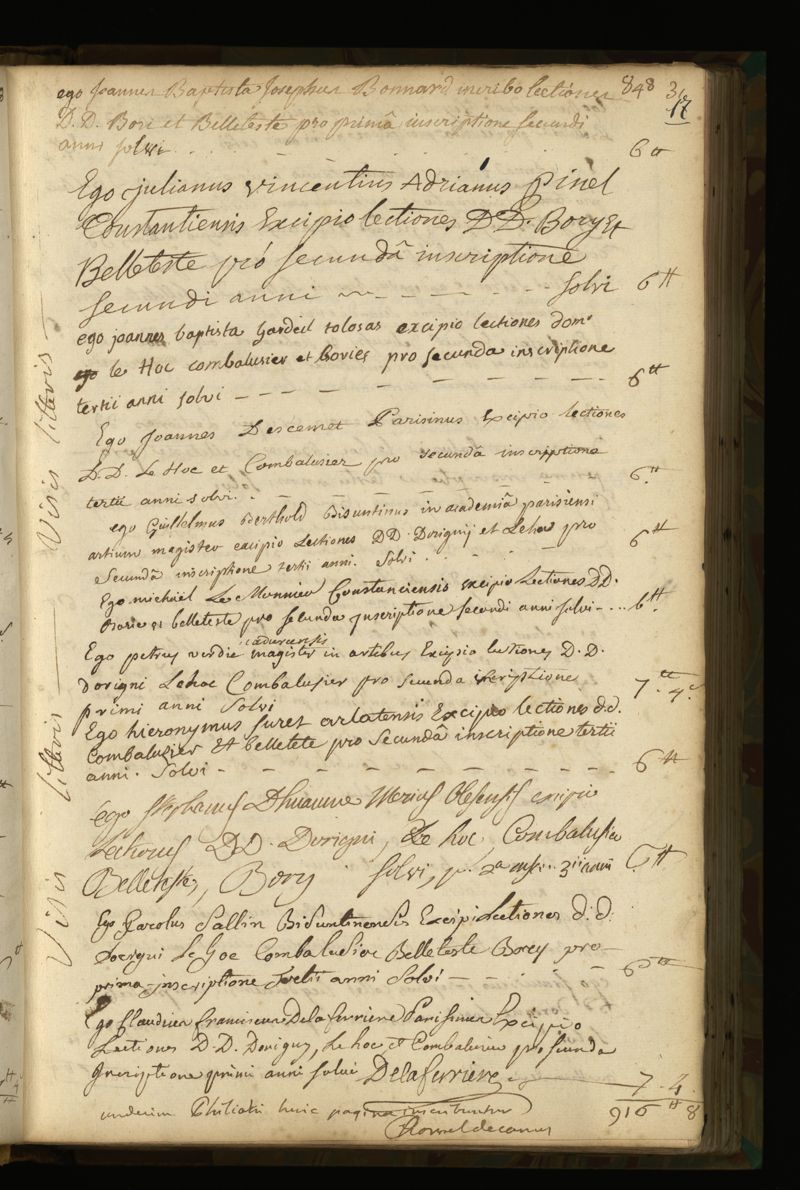 848 317
ego Joannes Baptista Josephus Bonnard inscribo lectiones
D.D. Bori et Belleteste pro primâ inscriptione secundi
anni solvi . . . 6 ₶
Ego julianus vincentius Adrianus Pinel
Constantiensis Excipio lectiones D.D. Bory Et
Belleteste pró secundâ inscriptione
secundi anni - - - - - solvi 6 ₶
ego joannes baptista Gardeil tolosas excipio lectiones dom.
le Hoc combalusier et Bories pro secunda inscriptione
tertii anni solvi - - - - - - 6 ₶
Ego Joannes Descemet Parisinus Excipio lectiones
D.D. Le Hoc et Combalusier pro secundâ inscriptione
tertii anni solvi. - - - - - 6 ₶
ego Guillelmus Berthold Bisuntinus in academiâ parisiensi
artium magister excipio Lectiones DD. Dorignij et Lehoc pro
Secundâ inscriptione tertii anni. Solvi . . . 6 ₶
Ego michaël Le Monnier Constanciensis excipio Lectiones DD.
Borie et belleteste pro secunda jnscriptione secundi anni solvi - ... 6 ₶
cadurcensis
Ego petrus verdie magister in artibus Excipio lectiones D. D.
dorigni Lehoc Combalusier pro secunda inscriptione
primi anni solvi 7 ₶ 4 s
Ego hieronymus furet arlatensis Excipio lectiones d.d.
Combalusier Et belletete pro Secundâ inscriptione tertii
anni. Solvi - - - - - - 6 ₶
ego stephanus Dhuaume excipio
Lectiones D.D. Dorigni, Le hoc, Combalusier
Belleteste, Bory solvi, pr. 2a insc. 3ii anni 6 ₶
Ego Carolus Sallin Bisuntinensis Excipi Lectiones d.d.
Dorigni Le Hoc Combalusier Belleteste Borey pro
prima inscriptione tertii anni Solvi - - - 6 ₶
Ego Claudius franciscus Delaferriere Parisinus Excipio
Lectiones D.D. Doriguy, Le hoc et Combalusier pro secunda
Inscriptione primi anni solvi Delaferriere 7 . 4 .
undecim Philiatri huic pagina inscribuntur 916 ₶ 8
decanus
Visis litteris — Visis litteris —